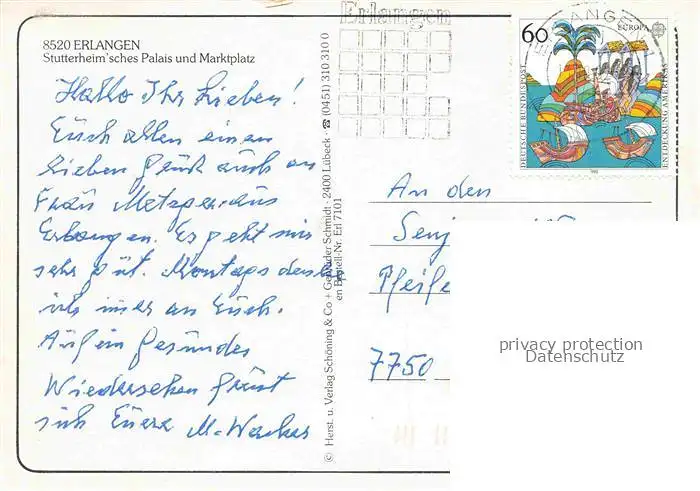 8520 ERLANGEN
Stutterheim'sches Palais und Marktplatz
Hallo Ihr Lieben!
Euch allen einen
lieben Gruß auch an
Frau Metzger aus
Erlangen. Es geht mir
sehr gut. Montags denke
ich immer an Euch.
Auf ein gesundes
Wiedersehen grüßt
sich Euere M. Wacker
© Herst. u. Verlag Schöning & Co + Gebrüder Schmidt · 2400 Lübeck · ☎ (0451) 310 310 0
Bestell-Nr. Erl 7101
Erlangen
ERLANGEN
60
EUROPA
DEUTSCHE BUNDESPOST
ENTDECKUNG AMERIKAS
1992
An den
7750
privacy protection
Datenschutz